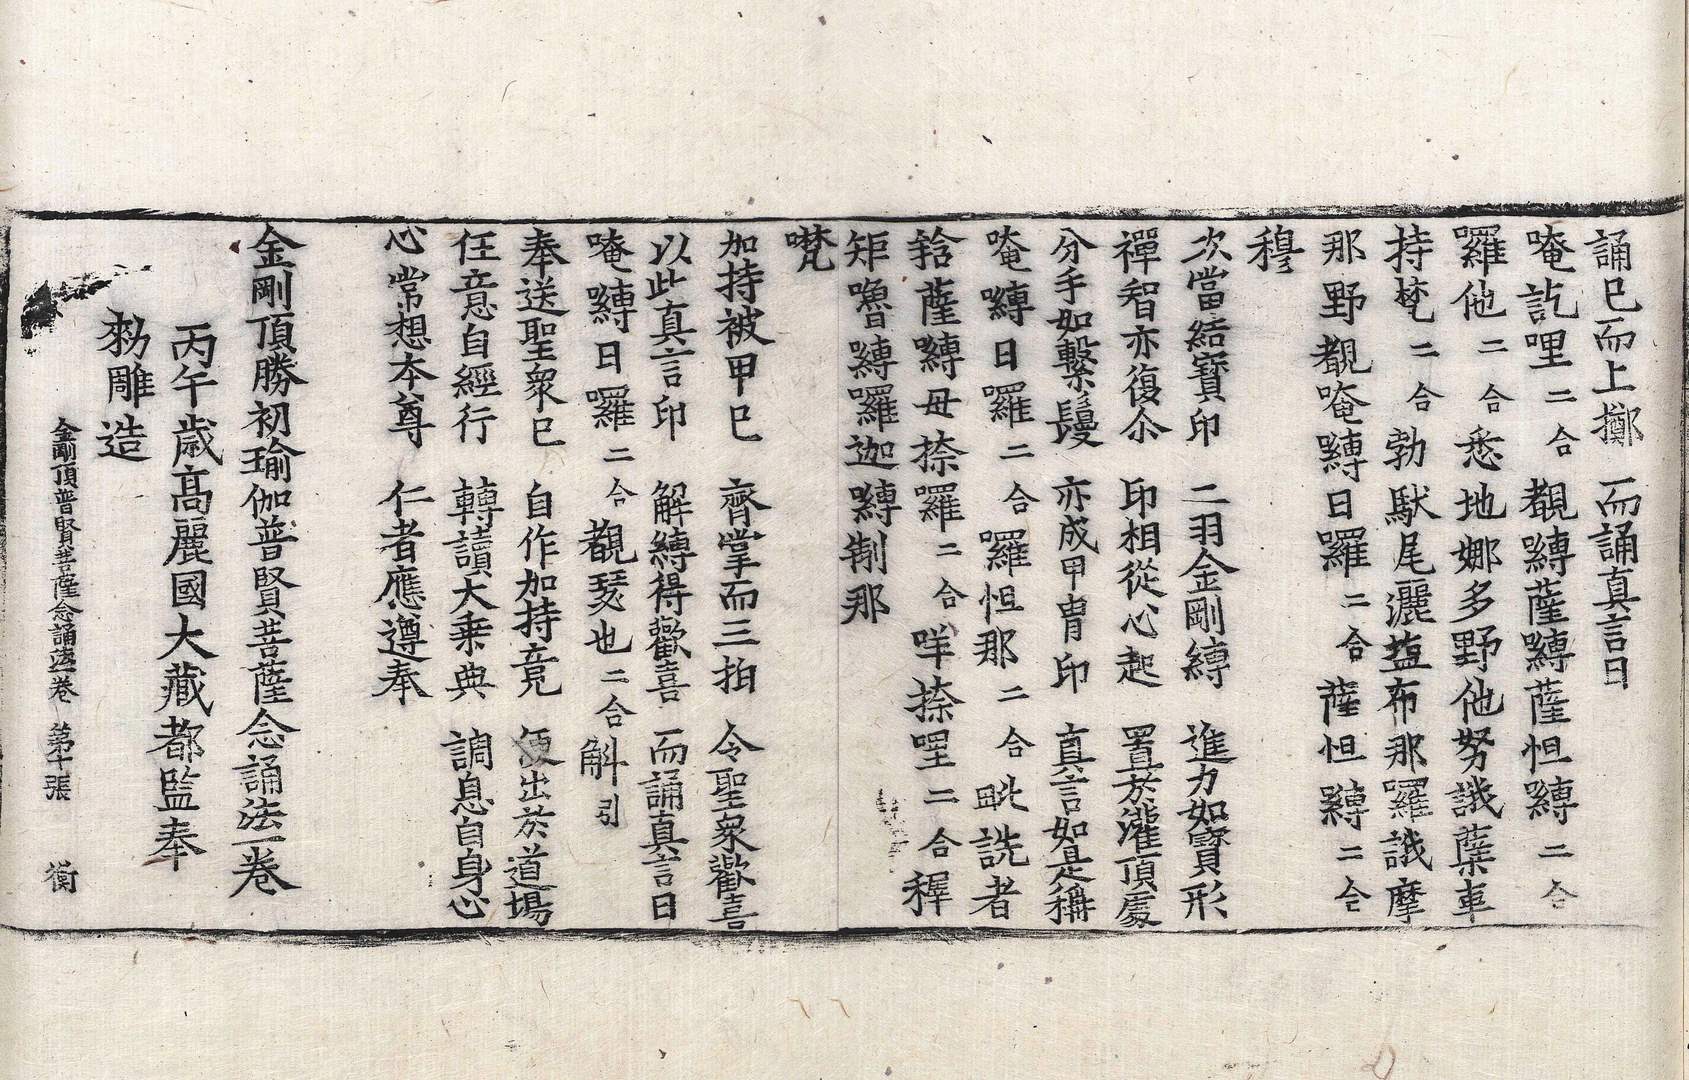 誦已而上擲　而誦真言曰
唵訖哩二合覩嚩薩嚩薩怛嚩二合
囉他二合悉地娜多野他努誐蘖車
持梵二合勃馱尾灑塩布那囉誐摩
那野覩唵嚩日囉二合薩怛嚩二合
穆
次當結寶印　二羽金剛縛　進力如寶形
禪智亦復尒　印相從心起　置於灌頂處
分手如繫鬘　亦成甲冑印　真言如是稱
唵嚩日囉二合囉怛那二合毗詵者
𤚥薩嚩母捺囉二合咩捺哩二合穉
矩嚕嚩囉迦嚩制那
㘕
加持被甲已　齊掌而三拍　令聖衆歡喜
以此真言印　解縛得歡喜　而誦真言曰
唵嚩日囉二合覩瑟也二合斛引
奉送聖衆已　自作加持竟　便出於道場
任意自經行　轉讀大乗典　調息自身心
心常想本尊　仁者應遵奉
金剛頂勝初瑜伽普賢菩薩念誦法一卷
丙午歲高麗國大藏都監奉
勑雕造
金剛頂普賢菩薩念誦法一卷　第十張　衡